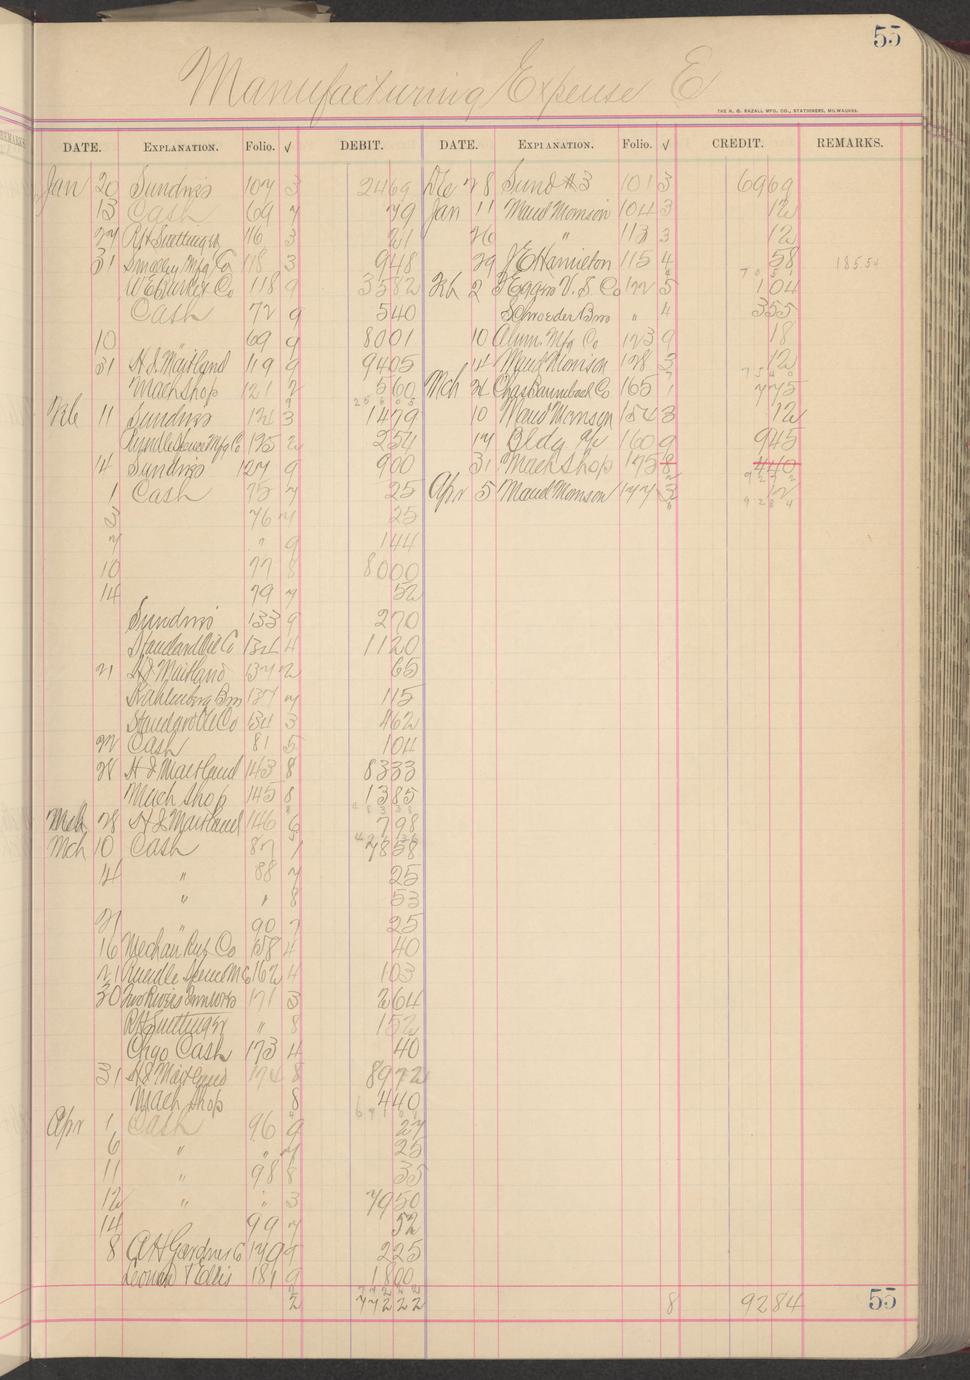 55
Manufacturing Expense E
THE H. G. RAZALL MFG. CO., STATIONERS, MILWAUKEE.
DATE. EXPLANATION. Folio. √ DEBIT. DATE. EXPLANATION. Folio. √ CREDIT. REMARKS.
Jan 20 Sundries 107 3 2469 Dec 28 Sund #3 101 3 6969
13 Cash 69 7 79 Jan 11 Maud Monison 104 3 12
27 116 3 21 26 " 113 3 12
31 Smalley Mfg Co 118 3 948 29 J E Hamilton 115 4 58 185.54
Co 118 9 3582 Feb 2 Co 122 5 104
Cash 72 9 540 Schroeder Bros " 4 355
10 69 9 8001 10 Alum. Mfg Co 123 9 18
31 H J Maitland 119 9 9405 14 Maud Monison 128 3 12
Mach Shop 121 2 560 Mch 2 Co 165 1 775
Feb 11 Sundries 124 3 1479 10 Maud Monison 154 3 12
Rundle Spence Mfg Co 125 2 254 17 Bldg a/c 160 9 945
14 Sundries 127 9 900 31 Mach Shop 175 8 440
1 Cash 75 7 25 Apr 5 Maud Monison 177 3 12
3 76 7 25
7 " 9 144
10 77 8 8000
14 79 7 52
Sundries 133 9 270
Standard Oil Co 134 4 1120
21 H J Maitland 137 2 65
Kahlenberg Bros 137 7 115
Co 134 3 462
22 Cash 81 5 104
28 H J Maitland 143 8 8333
Mach Shop 145 8 1385
Mch 28 H J Maitland 146 6 798
Mch 10 Cash 87 1 7858
14 " 88 7 25
" " 8 53
21 " 90 7 25
16 Mechan Rub Co 158 4 40
21 Rundle Spence M Co 162 4 103
30 Two Rivers Ironworks 171 3 264
" 8 152
Chgo Cash 173 4 40
31 H J Maitland 174 8 8972
Mach Shop 8 440
Apr 1 Cash 96 9 27
6 " " 7 25
11 " 98 8 35
12 " " 3 7950
14 99 7 52
8 A H Gardner Co 179 9 225
Leonard & Ellis 181 9 1800
2 77222 8 9284 55